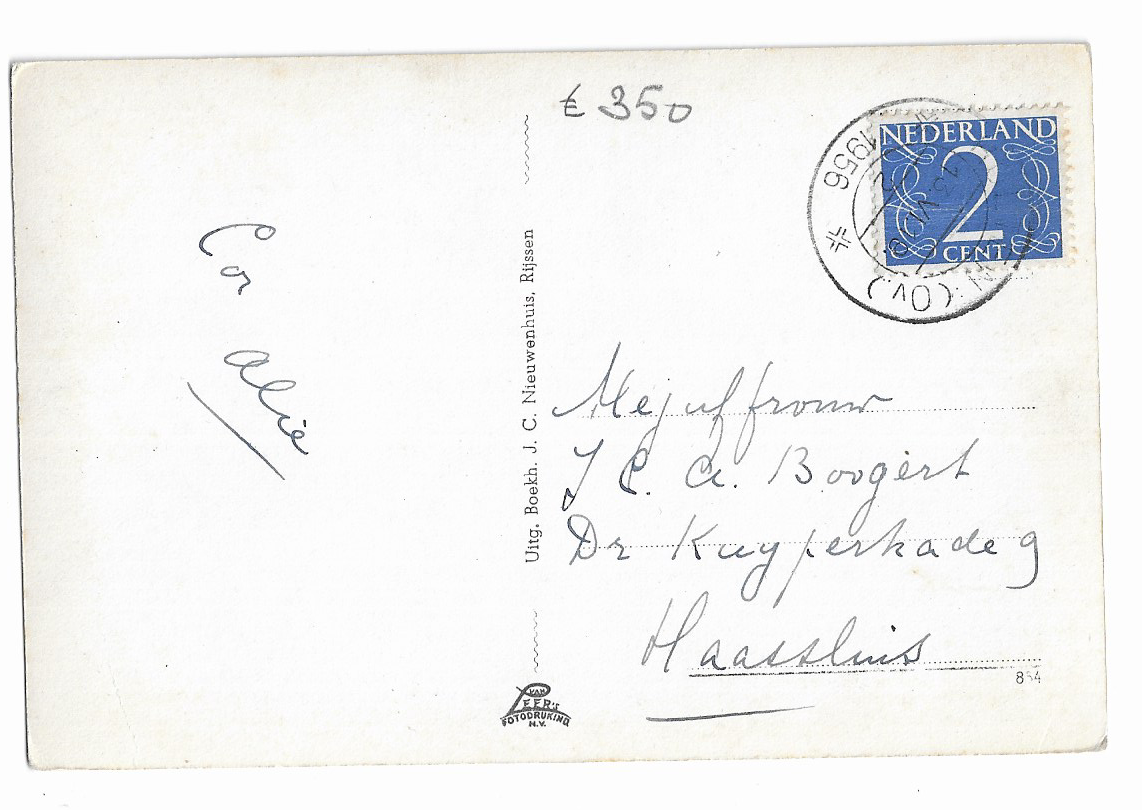 € 350
NEDERLAND
2
CENT
1956
(OV.)
Cor
Alie
Uitg. Boekh. J. C. Nieuwenhuis, Rijssen
Mejuffrouw
J C. A. Boogert
Dr Kuyperkade 9
Maassluis
854
VAN
LEER'S
FOTODRUKIND.
N.V.